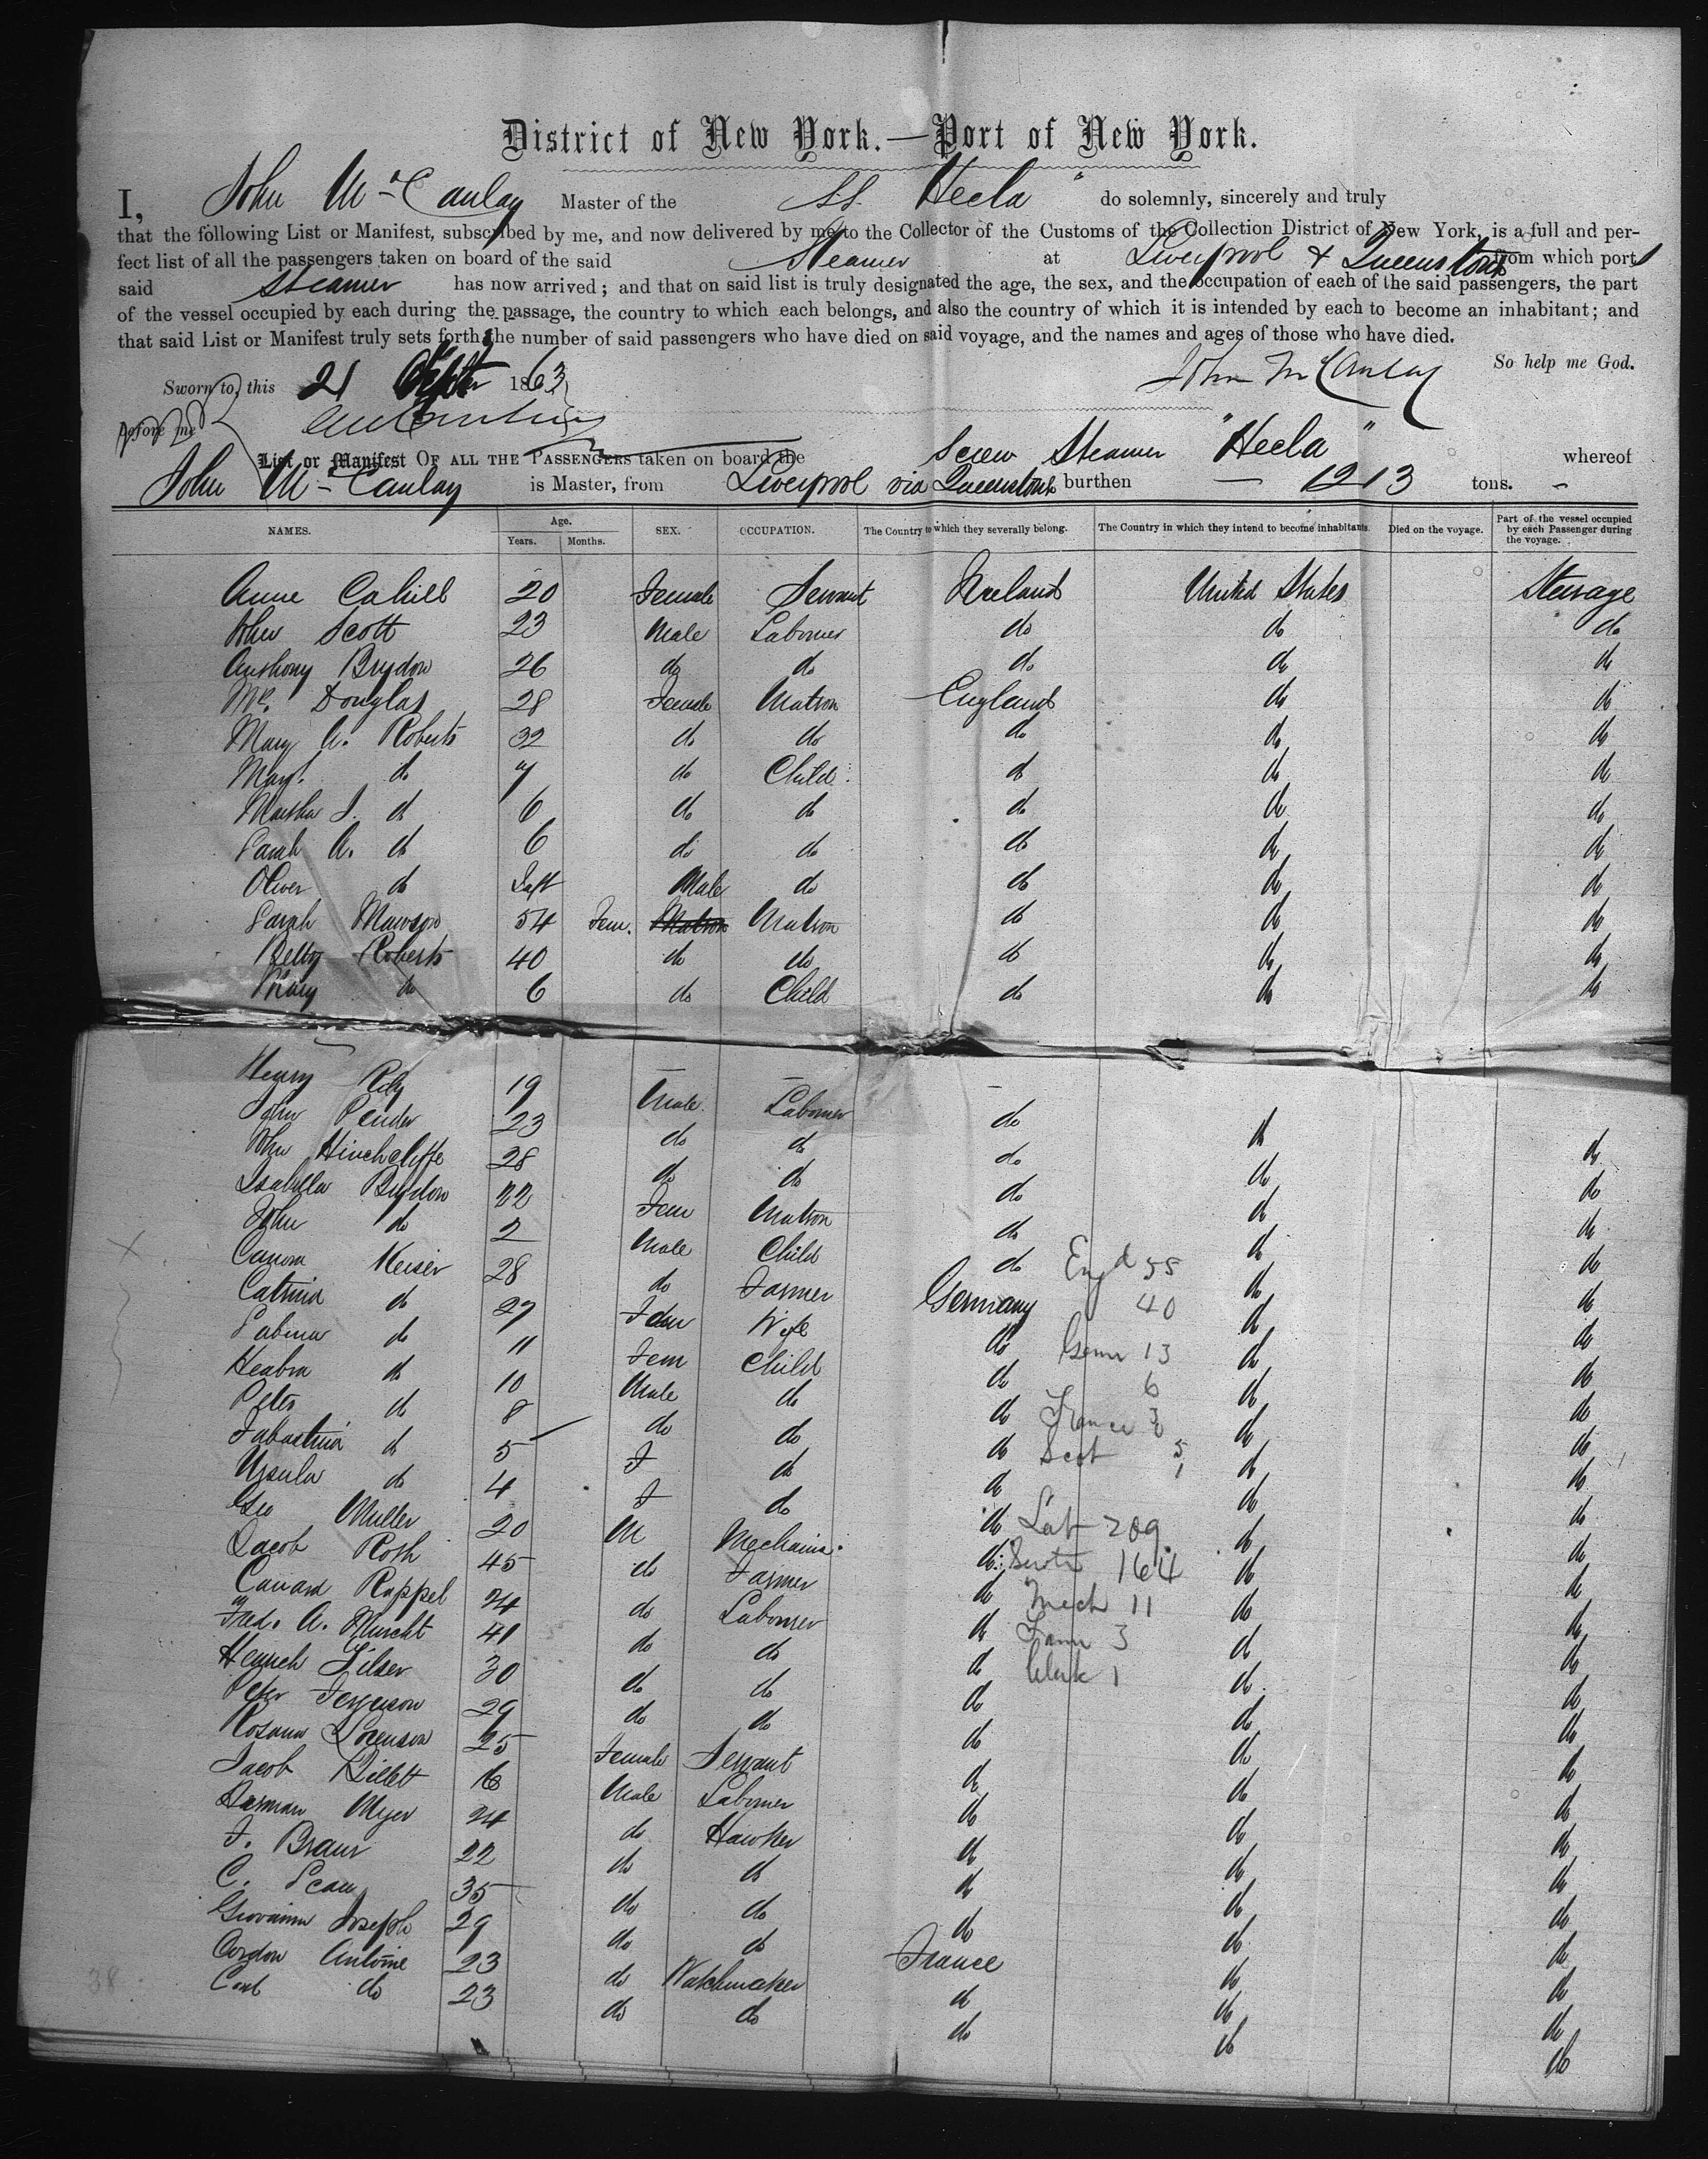 District of New York.—Port of New York.
I, John McCaulay Master of the SS. Hecla" do solemnly, sincerely and truly
that the following List or Manifest, subscribed by me, and now delivered by me to the Collector of the Customs of the Collection District of New York, is a full and per-
fect list of all the passengers taken on board of the said Steamer at Liverpool & Queenstown from which port
said Steamer has now arrived; and that on said list is truly designated the age, the sex, and the occupation of each of the said passengers, the part
of the vessel occupied by each during the passage, the country to which each belongs, and also the country of which it is intended by each to become an inhabitant; and
that said List or Manifest truly sets forth the number of said passengers who have died on said voyage, and the names and ages of those who have died.
So help me God.
Sworn to, this 21 1863 John McCaulay
before me
List or Manifest OF ALL THE PASSENGERS taken on board the Screw Steamer "Hecla" whereof
John McCaulay is Master, from Liverpool via Queenstown burthen — 1213 tons. –
NAMES. Age. Years. Months. SEX. OCCUPATION. The Country to which they severally belong. The Country in which they intend to become inhabitants. Died on the voyage. Part of the vessel occupied by each Passenger during the voyage.
Anne Cahill 20 Female Servant Ireland United States Steerage
John Scott 23 Male Labourer do do do
Anthony Brydon 26 do do do do do
Douglas 28 Female Matron England do do
Mary A. Roberts 32 do do do do do
Mary. do 7 do Child do do do
Martha J. do 6 do do do do do
Sarah A. do 6 do do do do do
Oliver do Inft Male do do do do
Sarah Mawson 54 Fem. Matron Matron do do do
Betty Roberts 40 do do do do do
Mary do 6 do Child do do do
Henry 19 Male Labourer do do do
John Pender 23 do do do do do
John Hinchcliffe 28 do do do do do
Isabella Brydon 22 Fem Matron do do do
John do 2 Male Child do do do
Keiser 28 do Farmer Germany do do
Catrina do 27 Fem Wife do do do
Sabina do 11 Fem Child do do do
do 10 Male do do do do
Peter do 8 do do do do do
do 5 F do do do do
Ursula do 4 F do do do do
Geo Muller 20 M Mechanic do do do
Jacob Roth 45 do Farmer do do do
Ruppel 24 do Labourer do do do
Fred. A. 41 do do do do do
30 do do do do do
Peter Ferguson 29 do do do do do
Rosana Sorenson 25 Female Servant do do do
Jacob Billett Male Labourer do do do
Harman Myer 24 do Hawker do do do
J. Braur 22 do do do do do
C. 35 do do do do do
Joseph 29 do do France do do
Antoine 23 do Watchmaker do do do
do 23 do do do do do
Engd 55
40
Germ 13
6
France 3
Scot 5
1
Lab 209
Servts 164
Mech 11
Farm 3
Clerk 1
38